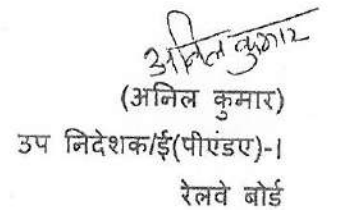 अनिल कुमार
(अनिल कुमार)
उप निदेशक/ई(पीएंडए)-I
रेलवे बोर्ड